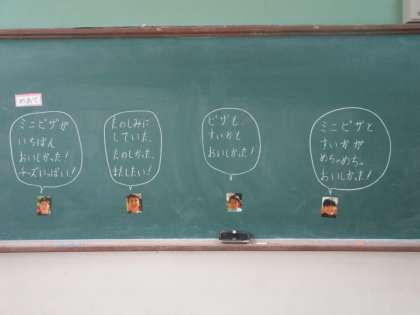 めあて
ミニピザが
いちばん
おいしかった!
チーズいっぱい!
たのしみに
していた。
たのしかった。
またしたい!
ピザと
すいかと
おいしかった!
ミニピザと
すいかが
めちゃめちゃ
おいしかった!